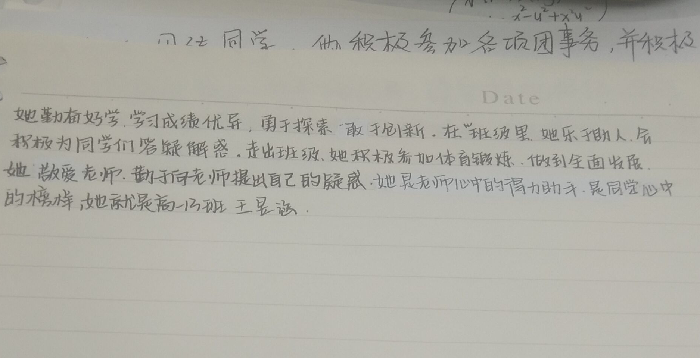 x²-y²+x²y
同学、他积极参加各项团事务，并积极
Date
她勤奋好学，学习成绩优异，勇于探索，敢于创新，在班级里，她乐于助人，会
积极为同学们答疑解惑，走出班级，她积极参加体育锻炼，做到全面发展。
她敬爱老师，勤于向老师提出自己的疑惑，她是老师心中的得力助手，是同学心中
的榜样，她就是高一13班 王昱涵.